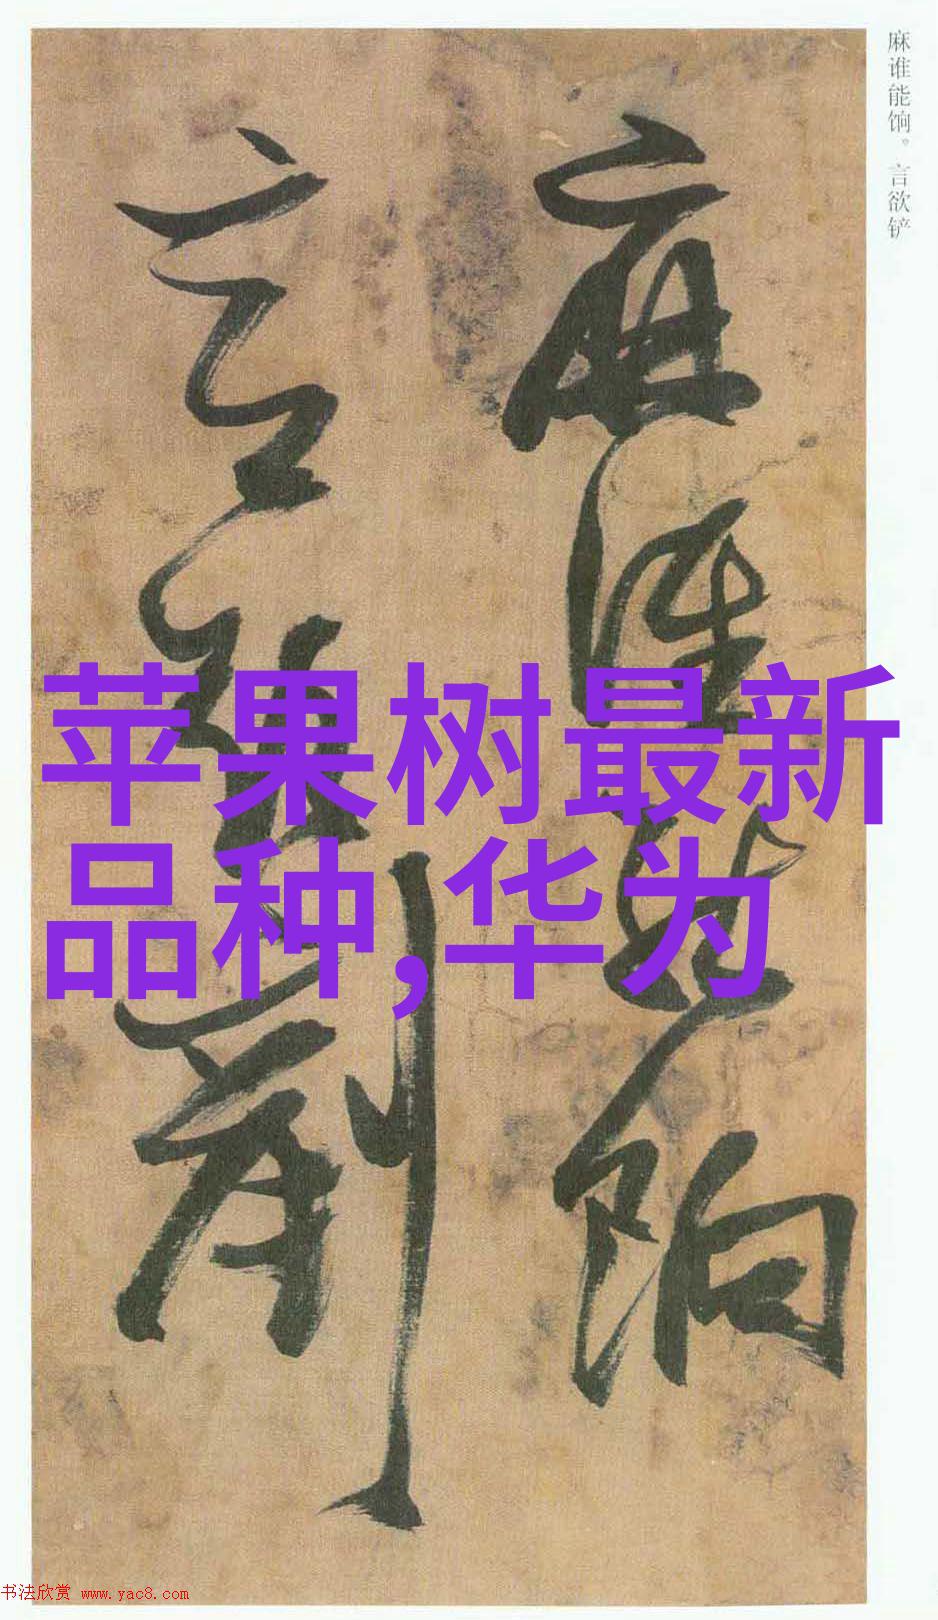 麻谁能饷。言欲铲
麻谁能饷
言欲剷
苹果树最新
品种,华为
书法欣赏 www.yac8.com